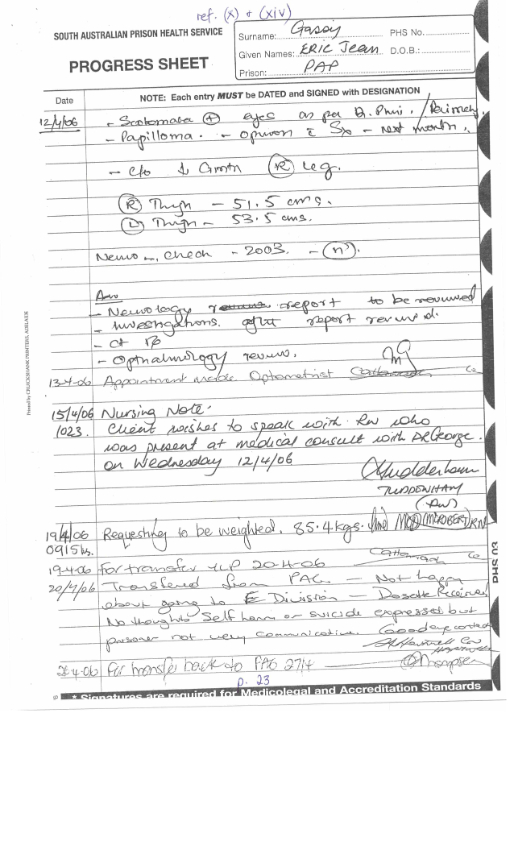 ref. (x) + (xiv)
SOUTH AUSTRALIAN PRISON HEALTH SERVICE
PROGRESS SHEET
Surname: Gassy PHS No.
Given Names: ERIC Jean D.O.B.:
Prison: PAP
Date NOTE: Each entry MUST be DATED and SIGNED with DESIGNATION
12/4/06 - Scotomata eyes as per
- Papilloma. - opinion - next month.
- c/o ↓ Growth (R) leg.
(R) Thigh - 51.5 cms.
(L) Thigh - 53.5 cms.
Neuro check - 2003. - (n).
- Neurology report to be reviewed
- Investigations. after report reviewed.
- Ct
- Opthalmology review.
13-4-06 Appointment made Optometrist
15/4/06 Nursing Note:
1023. Client wishes to speak with RN who
was present at medical consult with Dr George.
on Wednesday 12/4/06
TUDDENHAM
(RN)
19/4/06 Requesting to be weighted. 85.4kgs. RN
0915hs.
19-4-06 For transfer YLP 20-4-06
20/4/06 Transferred from PAC - Not happy
about going to E Division -
No thoughts Self harm or suicide expressed but
prisoner not very communicative. Good eye contact
4-06 For transfer back to 27/4
p. 23
* Signatures are required for Medicolegal and Accreditation Standards
PHS 03